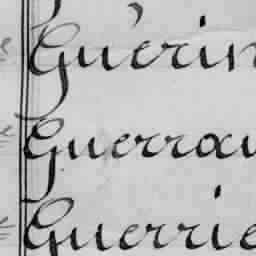 Guérin
Guerrau
Guerrie